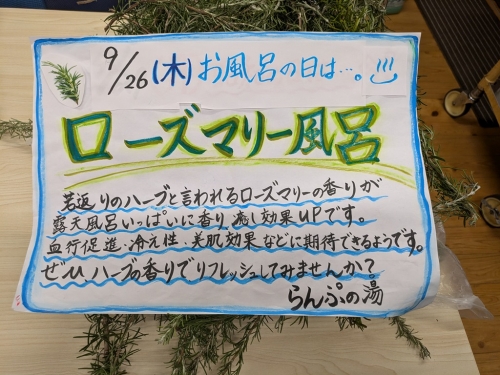 9/26(木)お風呂の日は…。
ローズマリー風呂
若返りのハーブと言われるローズマリーの香りが
露天風呂いっぱいに香り癒し効果UPです。
血行促進・冷え性・美肌効果などに期待できるようです。
ぜひハーブの香りでリフレッシュしてみませんか?
らんぷの湯